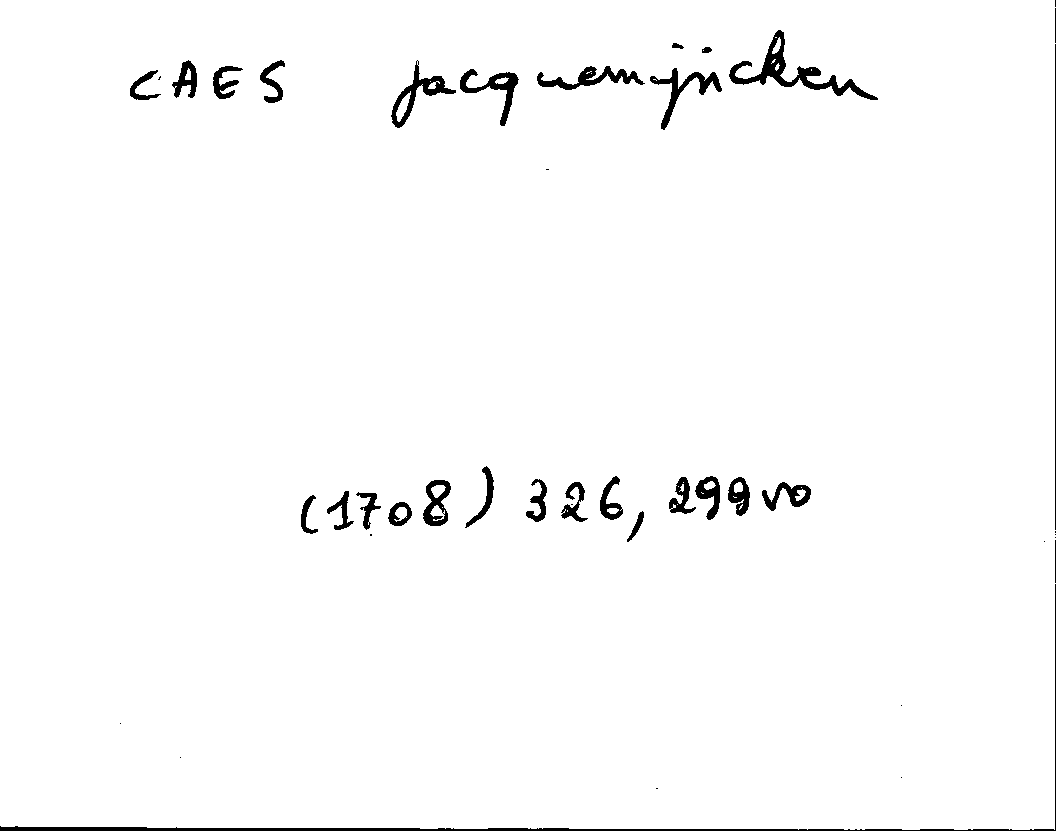 CAES Jacquemijncken
(1708) 326, 299vo